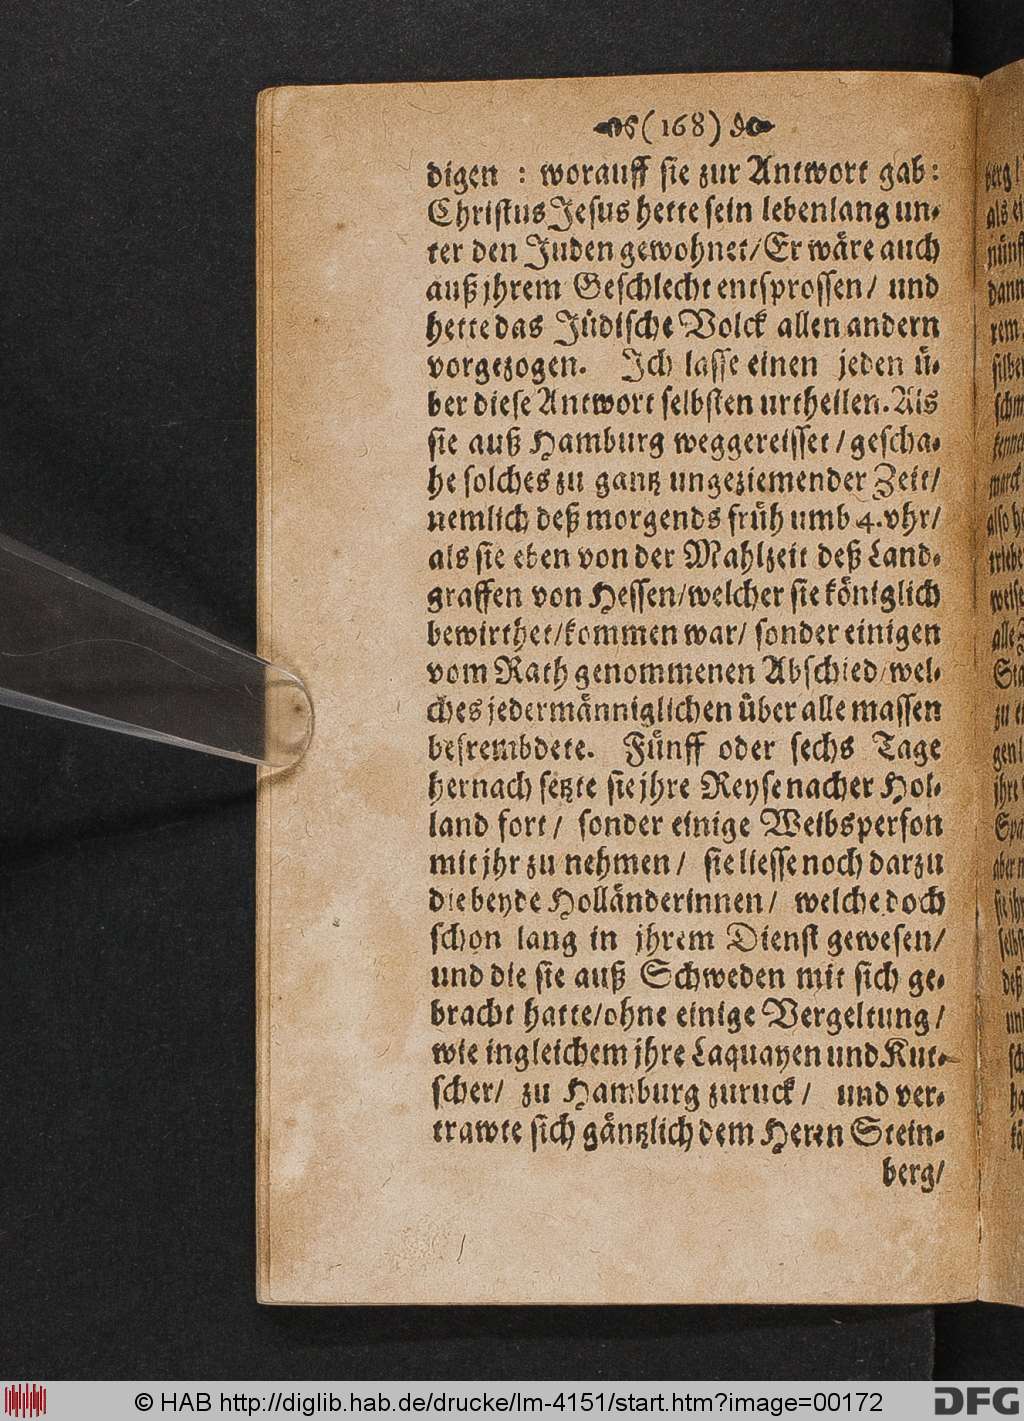 (168)
digen : worauff sie zur Antwort gab:
Christus Jesus hette sein lebenlang un-
ter den Juden gewohnet/ Er wäre auch
auß jhrem Geschlecht entsprossen/ und
hette das Jüdische Volck allen andern
vorgezogen. Ich lasse einen jeden ü-
ber diese Antwort selbsten urtheilen. Als
sie auß Hamburg weggereisset/ gescha-
he solches zu gantz ungeziemender Zeit/
nemlich deß morgends früh umb 4. vhr/
als sie eben von der Mahlzeit deß Land-
graffen von Hessen/ welcher sie königlich
bewirthet/ kommen war/ sonder einigen
vom Rath genommenen Abschied/ wel-
ches jedermänniglichen über alle massen
befrembdete. Fünff oder sechs Tage
hernach setzte sie jhre Reyse nacher Hol-
land fort/ sonder einige Weibsperson
mit jhr zu nehmen/ sie liesse noch darzu
die beyde Holländerinnen/ welche doch
schon lang in jhrem Dienst gewesen/
und die sie auß Schweden mit sich ge-
bracht hatte/ ohne einige Vergeltung/
wie ingleichem jhre Laquayen und Kut-
scher/ zu Hamburg zuruck/ und ver-
trawte sich gäntzlich dem Herrn Stein-
berg/
© HAB http://diglib.hab.de/drucke/lm-4151/start.htm?image=00172
DFG